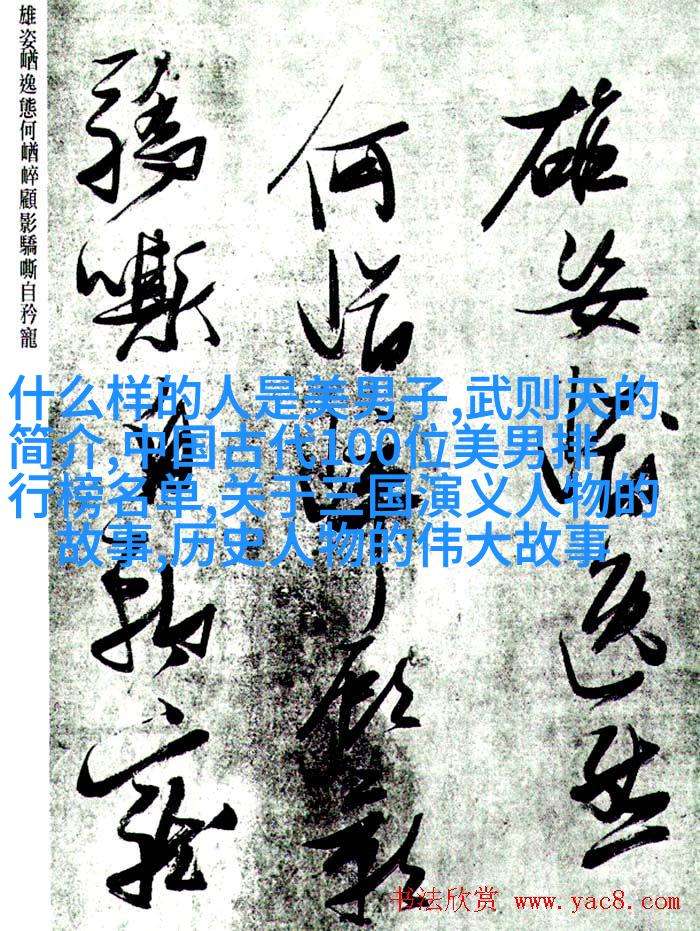 雄姿崷逸態何崷崒顧影驕嘶自矜寵
什么样的人是美男子,武则天的
简介,中国古代100位美男排
行榜名单,关于三国演义人物的
故事,历史人物的伟大故事
雄姿逸態
何崒顧影
驕嘶自矜寵
书法欣赏 www.yac8.com